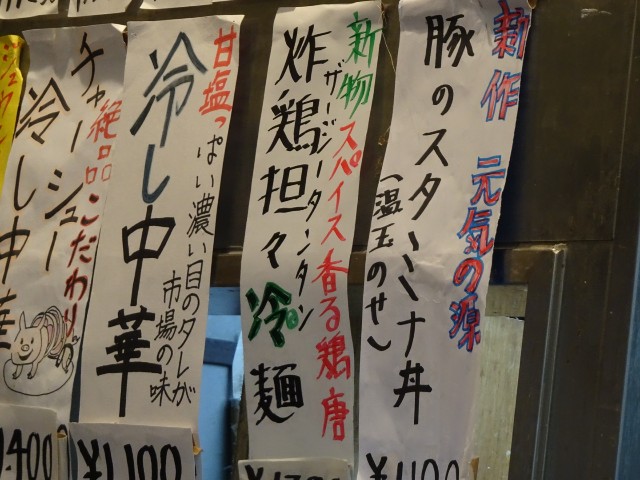 新作 元気の源
豚のスタミナ丼
(温玉のせ)
新物 スパイス香る鶏唐
ザージータンタン
炸鶏担々冷麺
甘塩っぱい濃い目のタレが
市場の味
冷し中華
¥1,100
絶品 こだわり
チャーシュー
冷し中華
1,400